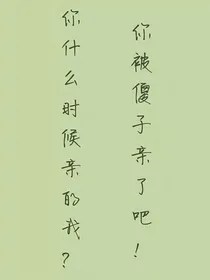 你被傻子亲了吧！
你什么时候亲的我？